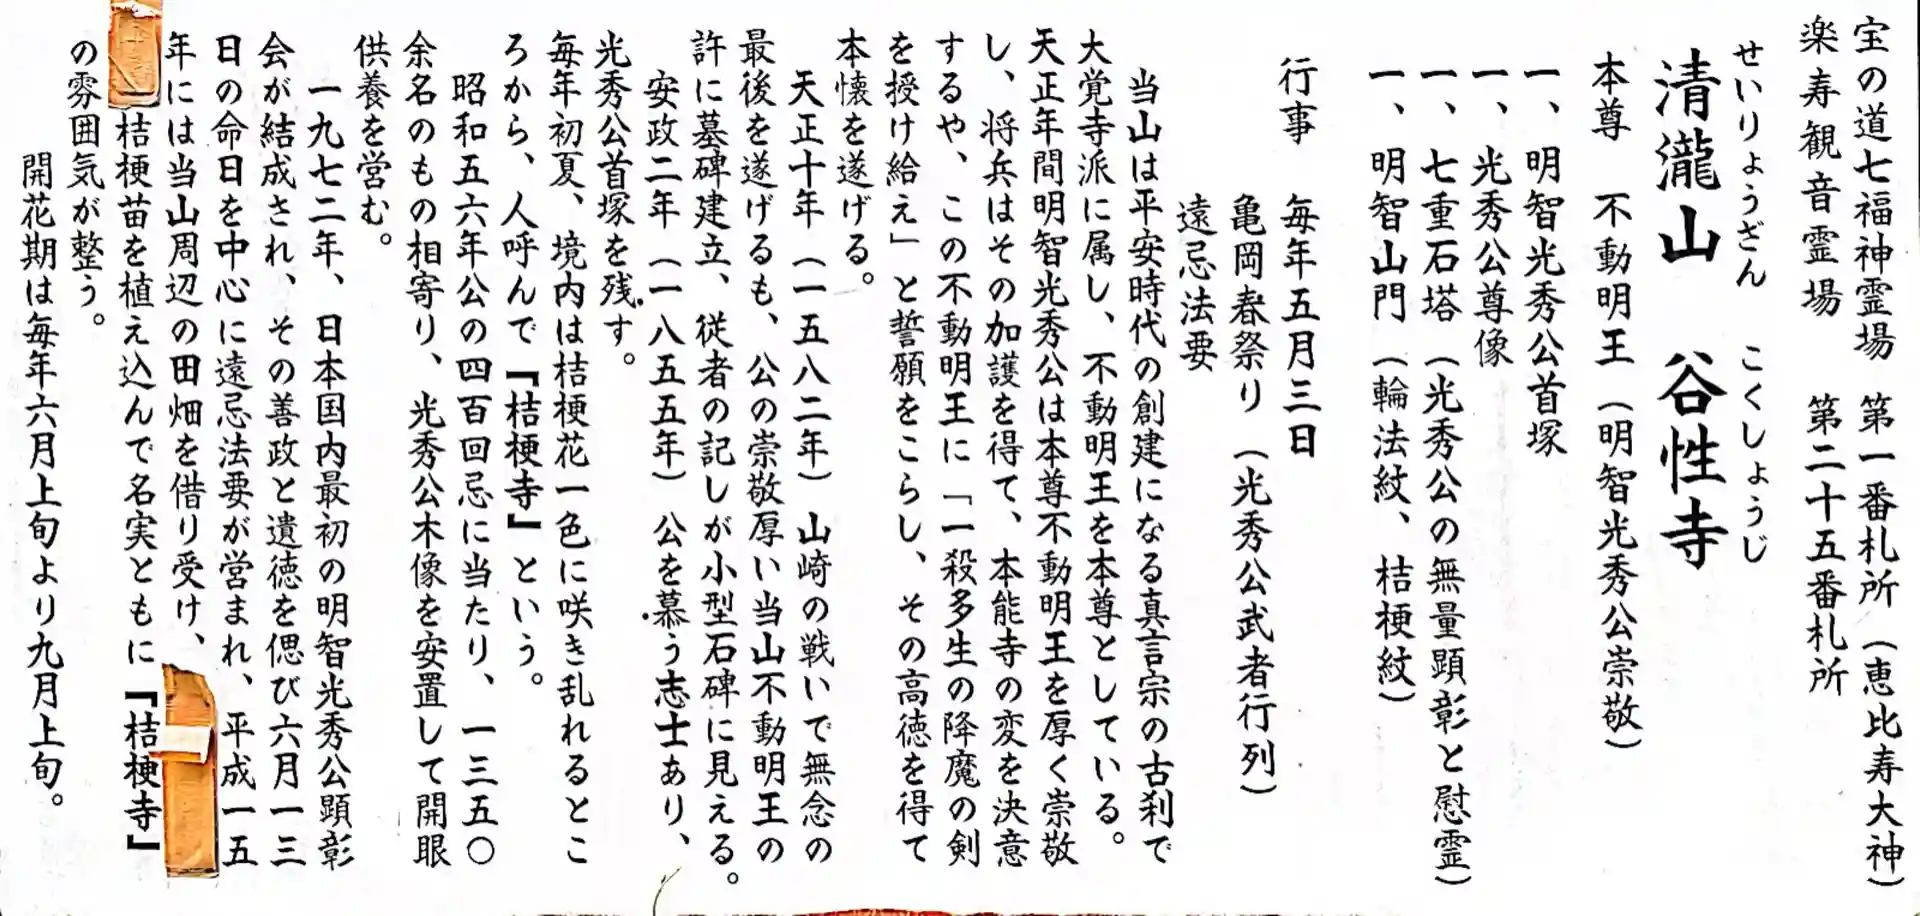 宝の道七福神霊場　第一番札所（恵比寿大神）
楽寿観音霊場　第二十五番札所
せいりょうざん　こくしょうじ
清瀧山　谷性寺
本尊　不動明王（明智光秀公崇敬）
一、明智光秀公首塚
一、光秀公尊像
一、七重石塔（光秀公の無量顕彰と慰霊）
一、明智山門（輪法紋、桔梗紋）
行事　毎年五月三日
亀岡春祭り（光秀公武者行列）
遠忌法要
当山は平安時代の創建になる真言宗の古刹で
大覚寺派に属し、不動明王を本尊としている。
天正年間明智光秀公は本尊不動明王を厚く崇敬
し、将兵はその加護を得て、本能寺の変を決意
するや、この不動明王に「一殺多生の降魔の剣
を授け給え」と誓願をこらし、その高徳を得て
本懐を遂げる。
天正十年（一五八二年）山崎の戦いで無念の
最後を遂げるも、公の崇敬厚い当山不動明王の
許に墓碑建立、従者の記しが小型石碑に見える。
安政二年（一八五五年）公を慕う志士あり、
光秀公首塚を残す。
毎年初夏、境内は桔梗花一色に咲き乱れるとこ
ろから、人呼んで『桔梗寺』という。
昭和五六年公の四百回忌に当たり、一三五〇
余名のもの相寄り、光秀公木像を安置して開眼
供養を営む。
一九七二年、日本国内最初の明智光秀公顕彰
会が結成され、その善政と遺徳を偲び六月一三
日の命日を中心に遠忌法要が営まれ、平成一五
年には当山周辺の田畑を借り受け、
桔梗苗を植え込んで名実ともに『桔梗寺』
の雰囲気が整う。
開花期は毎年六月上旬より九月上旬。